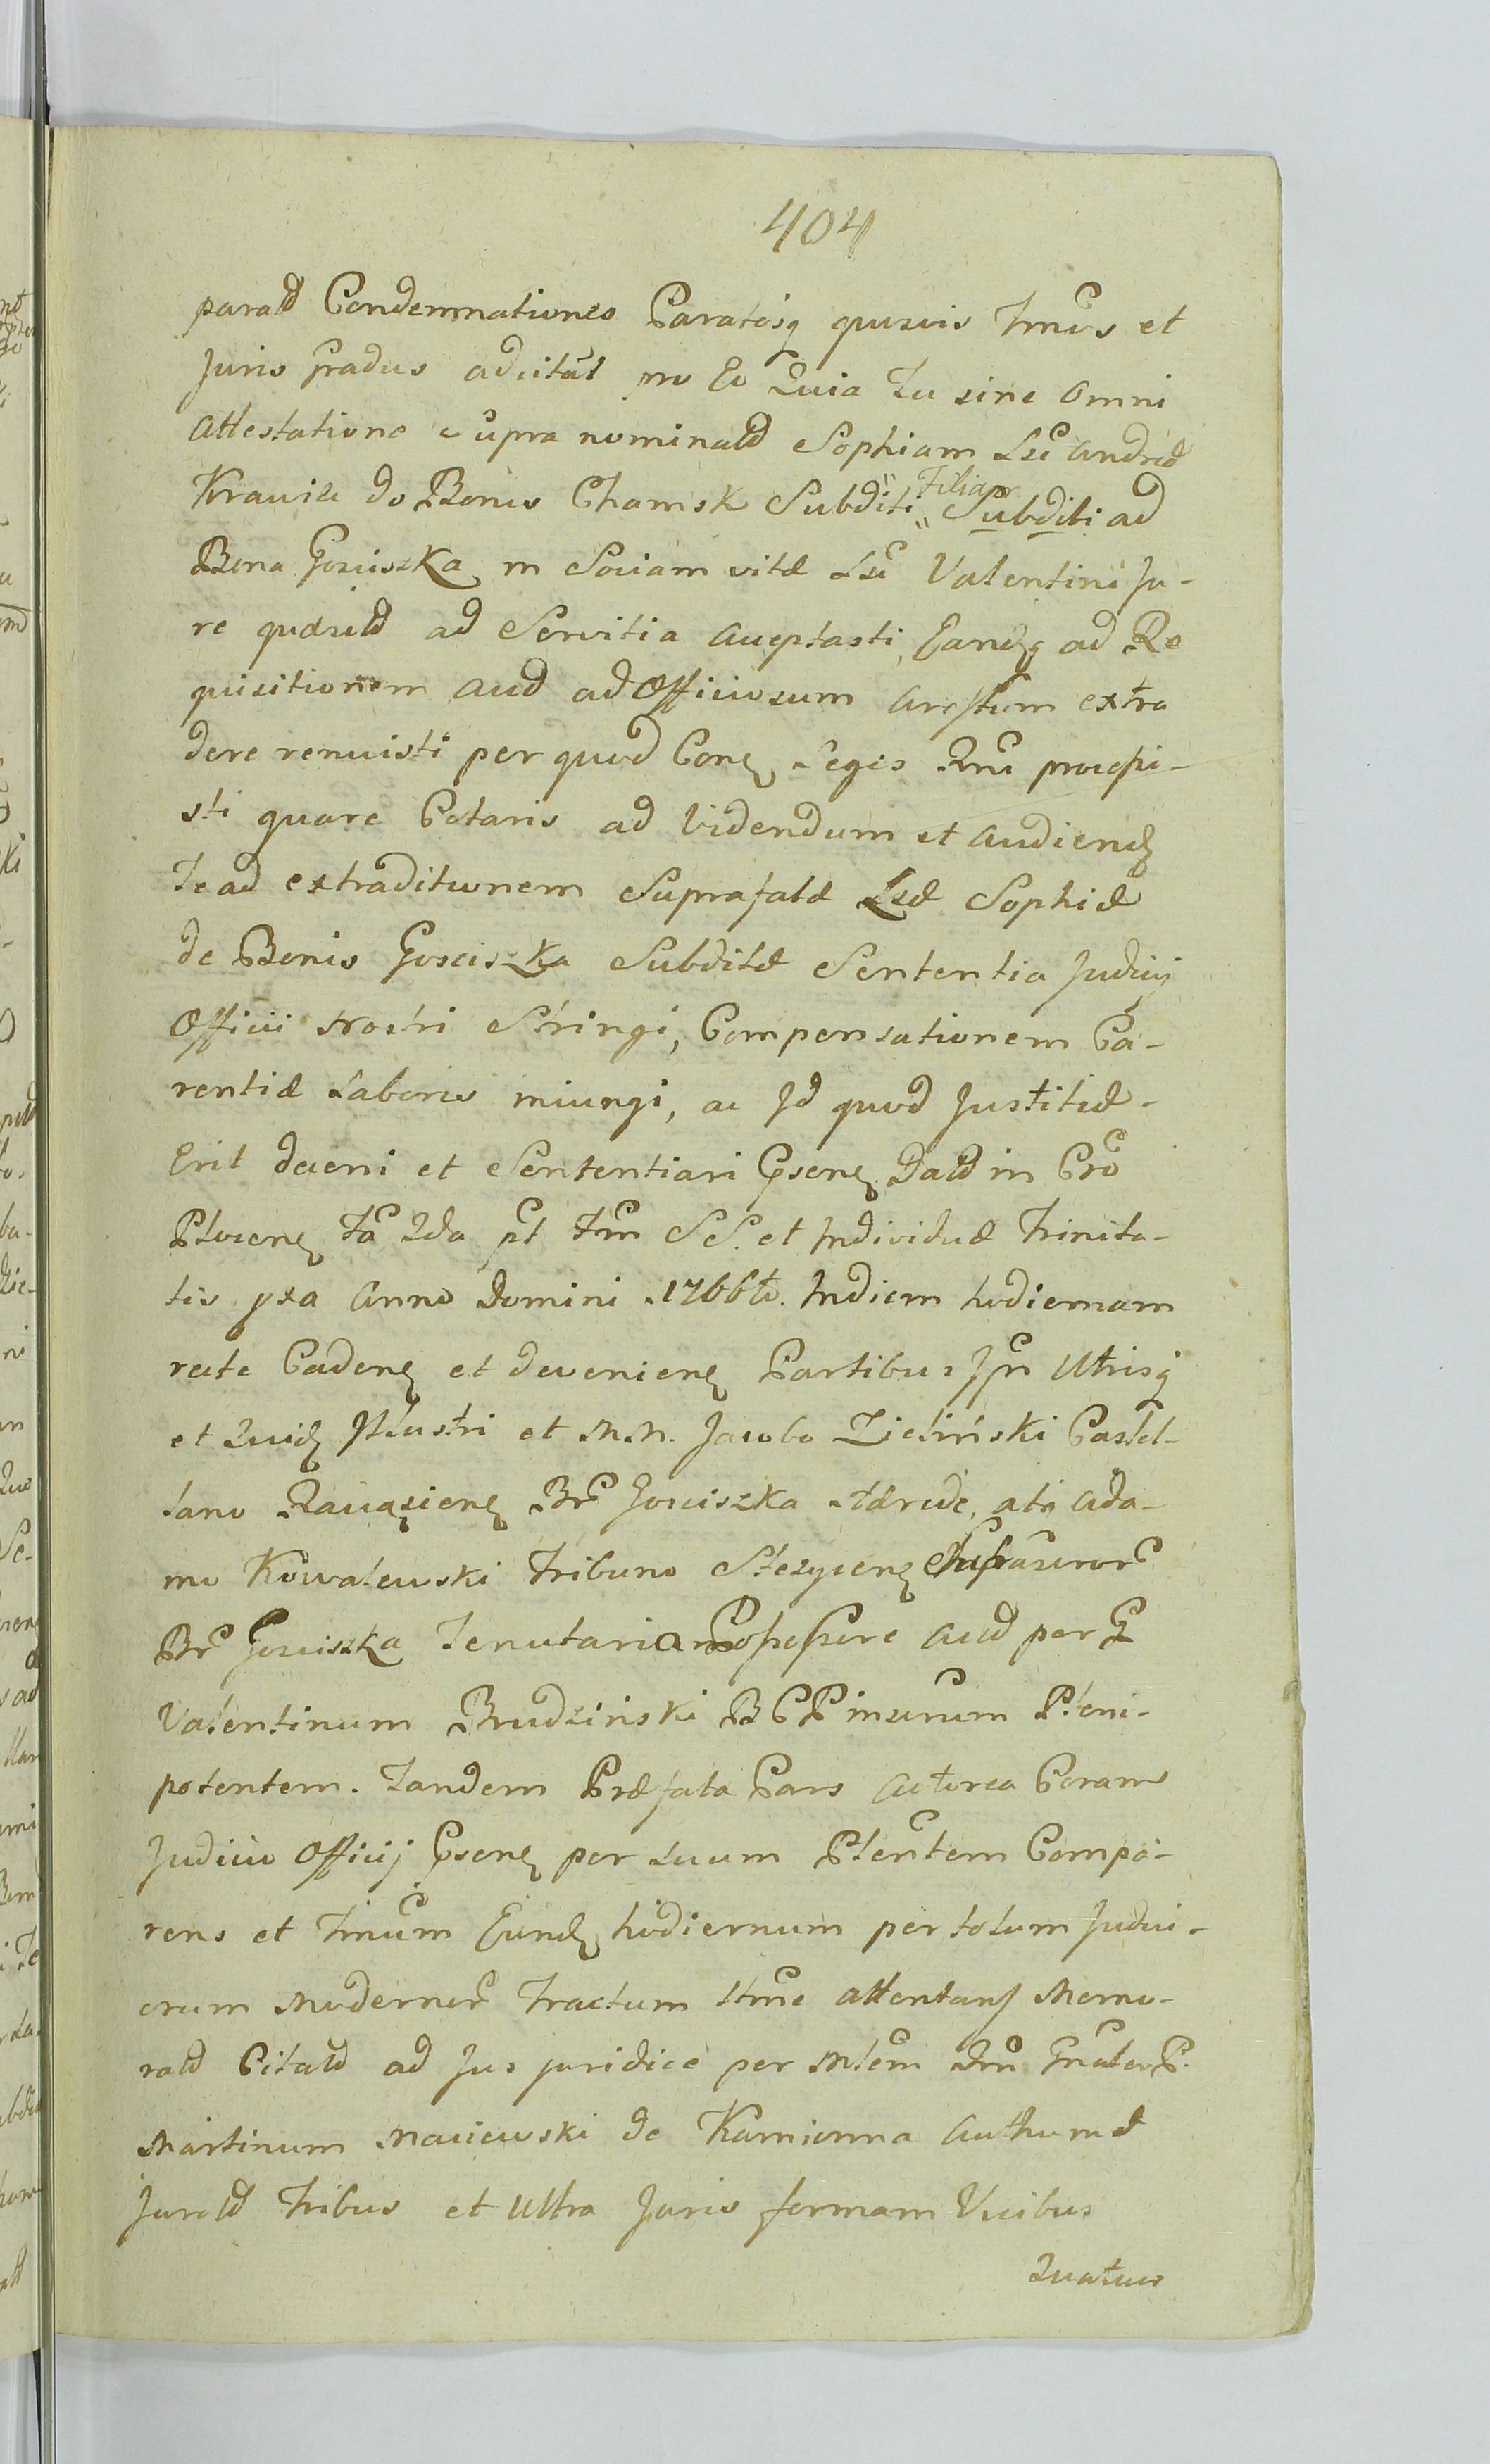 404
parata Condemnationes Paratasq quaevis Tmos et
Juris gradus adcitat pro Eo Quia Tu sine omni
attestatione supra nominata Sophiam Lsi andreae
Krawiec de Bonis Chamsk Subditi Filiam Subditi ad
Bona Gosciszka in Sociam vitae Lsi Valentini Ju-
re quaesita ad Servitia acceptasti, Eandq ad Re
quisitionem aut ad Officiosum arestum extra
dere renuisti per quod Conq Legis Rni procepi-
sti quare Cotaris ad Videndum et audiendq
Te ad extraditionem Suprafatae Lsae Sophiae
de Bonis Gosciszka Subditae Sententia Judicij
Officii Nostri Stringi, Compensationem Ca-
rentiae Laboris iniungi, ac Id quod Justitiae
Erit decerni et Sententiari Psenq Data in Cro
Plocenq Fa 2da pt Fm SS. et Individuae Trinita-
tis pxa Anno Domini 1766to. Indiem hodiernam
recte Cadenq et devenienq Partibus Ipn Utrisq
et Quidq Illustri et M.N. Jacobo Zieliński Castel-
lano Racazienq Br Gosciszka Haerede, ato Ada-
mo Kowalewski Tribuno Stezycenq
Br Gosciszka Tenutario Possessore aut per G
Valentinum Brudzinski B C P insurum Pleni-
potentem. Tandem Praefata Pars actorea Coram
Judicio Officij Psenq per suum Plentem Compa-
rens et Tmum Eundq hodiernum per totum Judici-
orum Modernor Tractum ltme attentans Memo-
rata Citata ad Jus juridice per Mlem Rni Gnalem P.
Martinum Maciewski de Kamionna authume
Jurata Tribus et Ultra Juris formam Vicibus
Quatuor